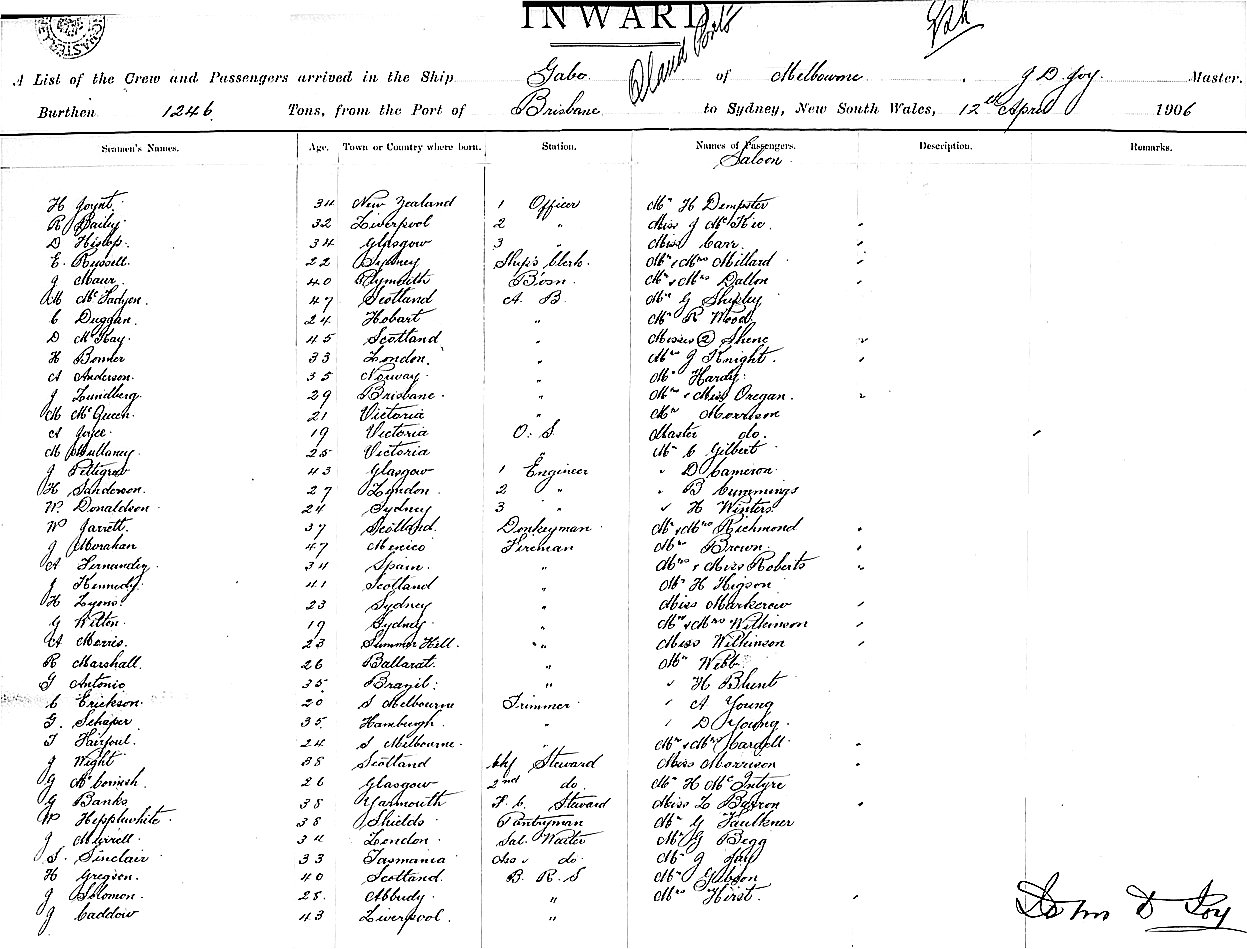 INWARD
A List of the Crew and Passengers arrived in the Ship Gabo of Melbourne, J D Joy. Master.
Burthen 1246 Tons, from the Port of Brisbane to Sydney, New South Wales, 12th April 1906
Seamen's Names. Age. Town or Country where born. Station. Names of Passengers. Description. Remarks.
Saloon
H Joynt. 34 New Zealand 1 Officer Mr H Dempster
R Bailey 32 Liverpool 2 " Miss J McKew.
D Hislop. 34 Glasgow 3 " Miss Carr.
E. Russell. 22 Sydney Ship's Clerk. Mr & Mrs Millard
J Maur. 40 Plymouth Bosn. Mr & Mrs Dalton
M McFadyen. 47 Scotland A. B. Mr G Shipley
C Duggan. 24 Hobart " Mr R Wood
D McKay. 45 Scotland " Misses (2) Shene
H Bomer 33 London. " Mrs J Knight.
A Anderson. 35 Norway. " Mr Hardy.
J Lundberg. 29 Brisbane. " Mrs & Miss Oregan.
M McQueen. 21 Victoria " Mrs Morrison
A Joyce. 19 Victoria O. S. Master do.
M Mullaney. 25 Victoria Mr C Gilbert
J Pettigrew 43 Glasgow 1 Engineer " D Cameron.
H Sanderson. 27 London. 2 " " B Cummings
W. Donaldson. 24 Sydney 3 " " H Winters
W Jarrett. 37 Scotland. Donkeyman Mr & Mrs Richmond
J Morahan 47 Mexico Fireman Mrs Brown.
A Fernandez 34 Spain. " Mrs & Miss Roberts
J Kennedy. 41 Scotland " Mr H Higson
H Lyons. 23 Sydney " Miss Markcrew
G Witton. 19 Sydney " Mr & Mrs Wilkinson
A Morris. 23 Summer Hill. " Miss Wilkinson
R Marshall. 26 Ballarat. " Mr Webb
G Antonio 35 Brazil. " " H Blunt
C Erickson. 20 S Melbourne Trimmer " A Young
G. Schaper 35 Hamburgh. " " D Young.
T Fairfoul. 24 S Melbourne. " Mr & Mrs Cardell
J Wight 38 Scotland Chf Steward Miss Morrison
G McCornish. 26 Glasgow 2nd do. Mr H McIntyre
G Banks 38 Yarmouth F. C. Steward Miss L Barron
W Hepplewhite. 38 Shields Pantryman Mr G Faulkner
J Myrrell. 34 London. Sal. Waiter Mr G Begg
S. Sinclair 33 Tasmania Ass. do. Mr J Jay
H Gregson. 40 Scotland. B. R. S Mr Gibson
J Solomon. 28. " Mrs Hirst.
J Caddow. 43 Liverpool. "
John D Joy